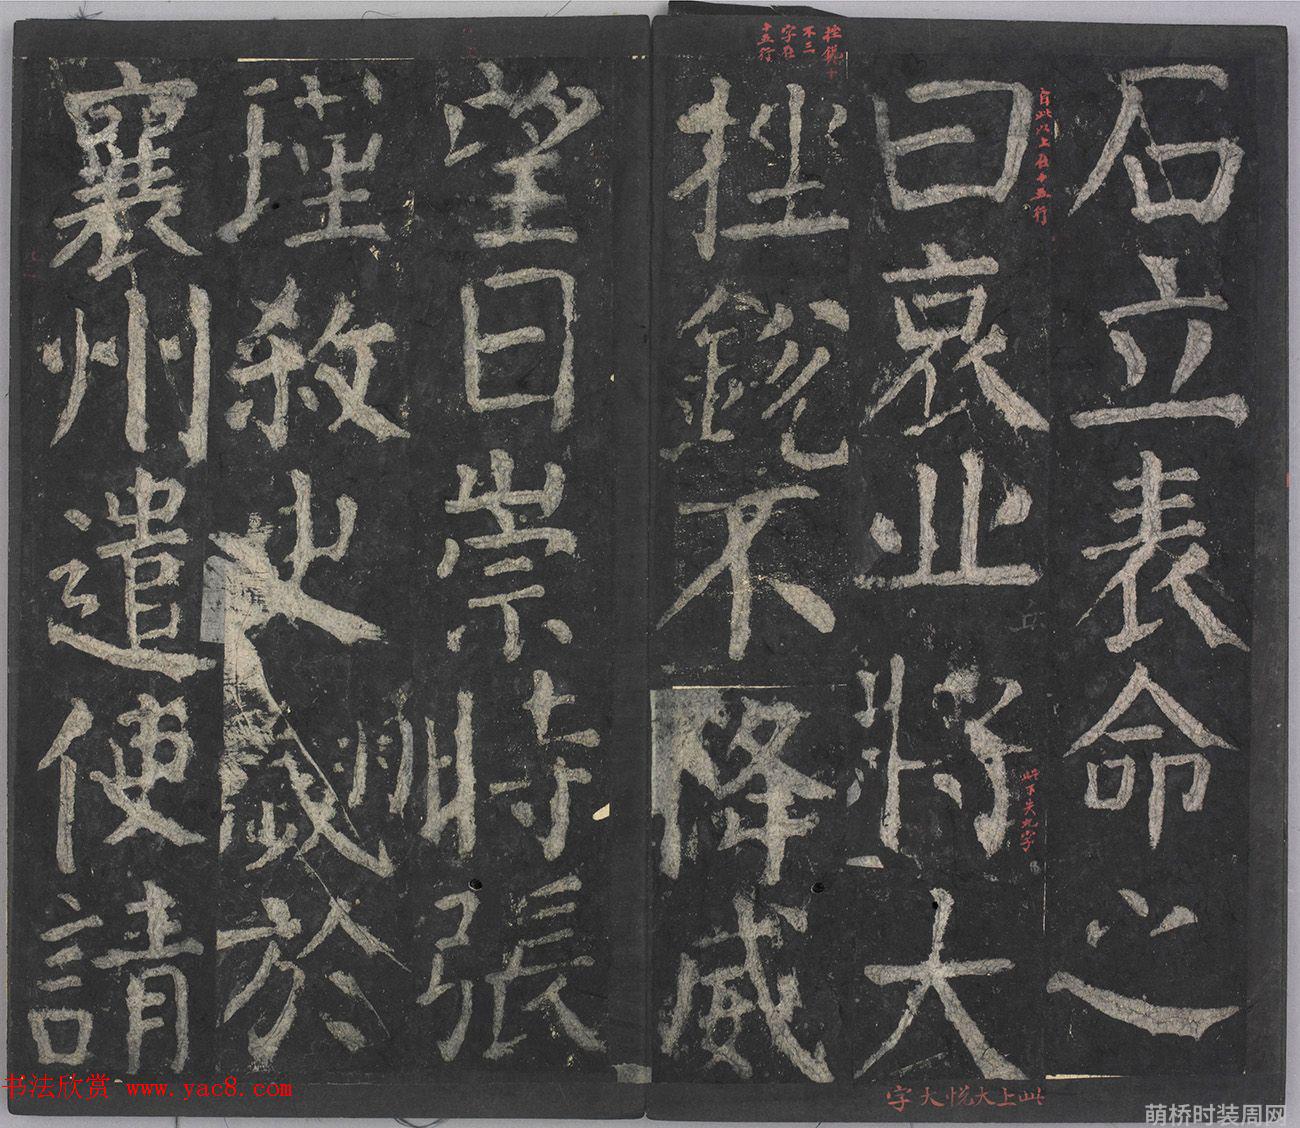 石立表命之
曰哀丘將大
挫銳不降威
望日崇時張
瑾殺史翽於
襄州遣使請
自此以上在十五行
挫銳
不三
字在
十五行
此下失九字
丘
此上大悅大字
书法欣赏 www.yac8.com
萌桥时装周网